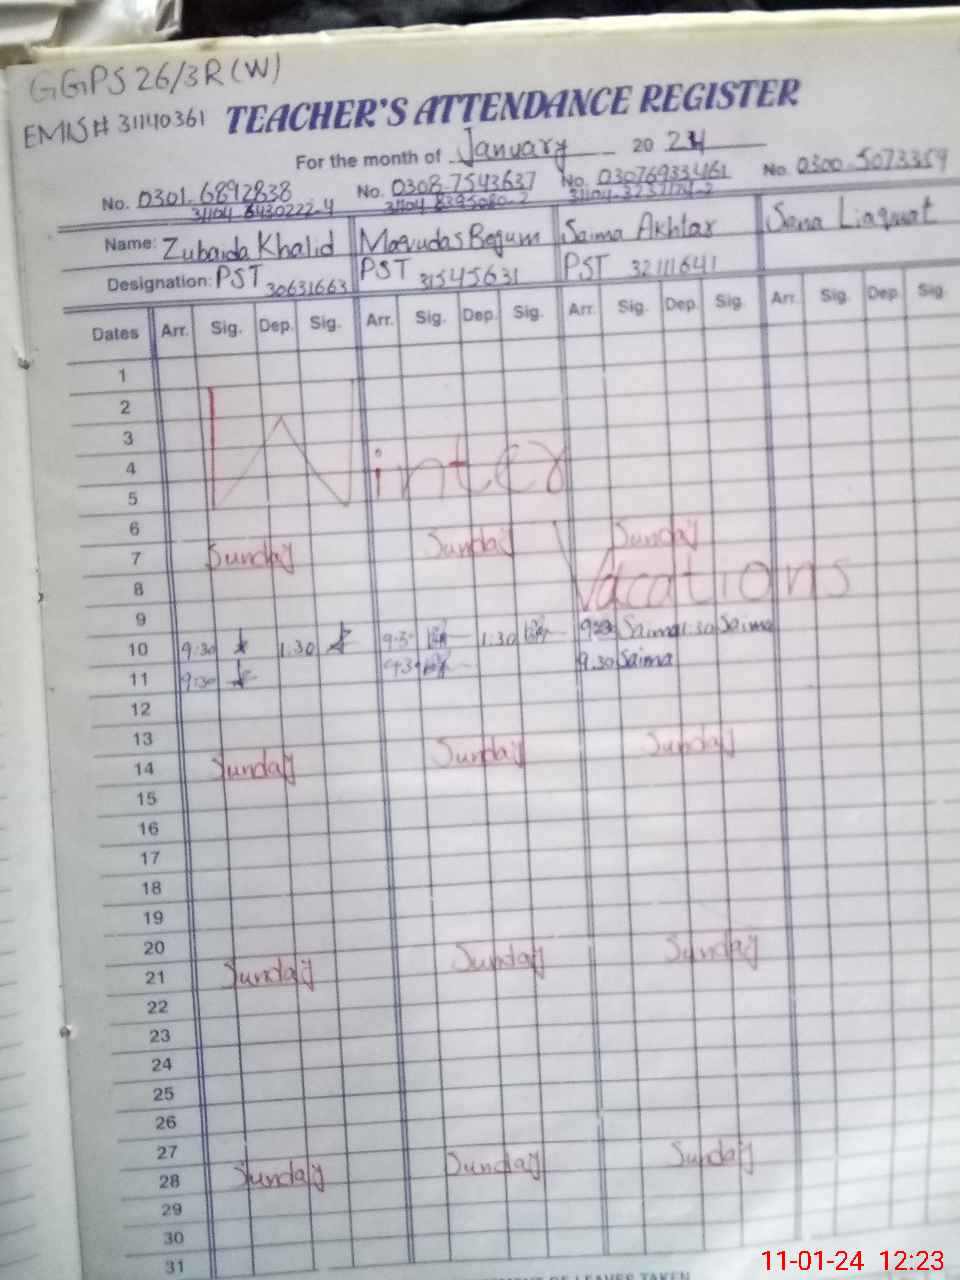 GGPS 26/3R (W)
EMIS# 31140361 TEACHER'S ATTENDANCE REGISTER
For the month of January 2024
No. 0301-6892838 No. 0308-7543637 No. 03076933461 No. 0300-5073359
31104 8430222-4
Name: Zubaida Khalid Maqudas Begum Saima Akhtar Sana Liaquat
Designation: PST 30631663 PST 31545631 PST 32111641
Dates Arr. Sig. Dep. Sig. Arr. Sig. Dep. Sig. Arr. Sig. Dep. Sig. Arr. Sig. Dep. Sig.
1
2
3
4 Winter
5
6
7 Sunday Sunday Sunday
8 Vacations
9
10 9:30 1:30 9:30 1:30 9:30 Saima 1:30 Saima
11 9:30 9:30 9.30 Saima
12
13
14 Sunday Sunday Sunday
15
16
17
18
19
20
21 Sunday Sunday Sunday
22
23
24
25
26
27
28 Sunday Sunday Sunday
29
30
31
OF LEAVES TAKEN
11-01-24 12:23